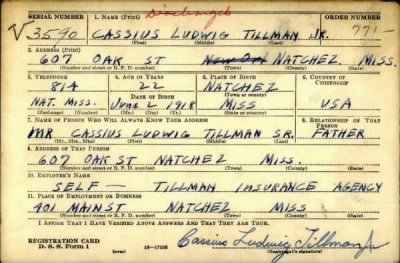 Discharged
SERIAL NUMBER 1. NAME (Print) ORDER NUMBER
V 3590 CASSIUS LUDWIG TILLMAN JR. 771-
(First) (Middle) (Last)
2. ADDRESS (Print)
607 OAK ST New Orl NATCHEZ MISS.
(Number and street or R. F. D. number) (Town) (County) (State)
3. TELEPHONE 4. AGE IN YEARS 5. PLACE OF BIRTH 6. COUNTRY OF CITIZENSHIP
814 22 NATCHEZ
DATE OF BIRTH (Town or county)
NAT. MISS. JUNE 2 1918 MISS USA
(Exchange) (Number) (Mo.) (Day) (Yr.) (State or country)
7. NAME OF PERSON WHO WILL ALWAYS KNOW YOUR ADDRESS 8. RELATIONSHIP OF THAT PERSON
MR CASSIUS LUDWIG TILLMAN SR. FATHER
(Mr., Mrs., Miss) (First) (Middle) (Last)
9. ADDRESS OF THAT PERSON
607 OAK ST NATCHEZ MISS.
(Number and street or R. F. D. number) (Town) (County) (State)
10. EMPLOYER'S NAME
SELF — TILLMAN INSURANCE AGENCY
11. PLACE OF EMPLOYMENT OR BUSINESS
401 MAIN ST NATCHEZ MISS
(Number and street or R. F. D. number) (Town) (County) (State)
I AFFIRM THAT I HAVE VERIFIED ABOVE ANSWERS AND THAT THEY ARE TRUE.
REGISTRATION CARD
D. S. S. Form 1 (over) 16—17105 Cassius Ludwig Tillman Jr
(Registrant's signature)